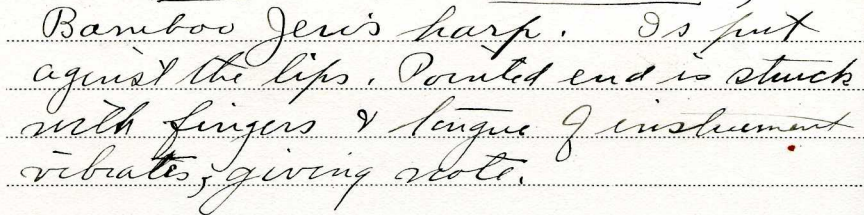 Bamboo Jew's harp. Is put
aginst the lips. Pointed end is struck
with fingers & tongue of instrument
vibrates, giving note.